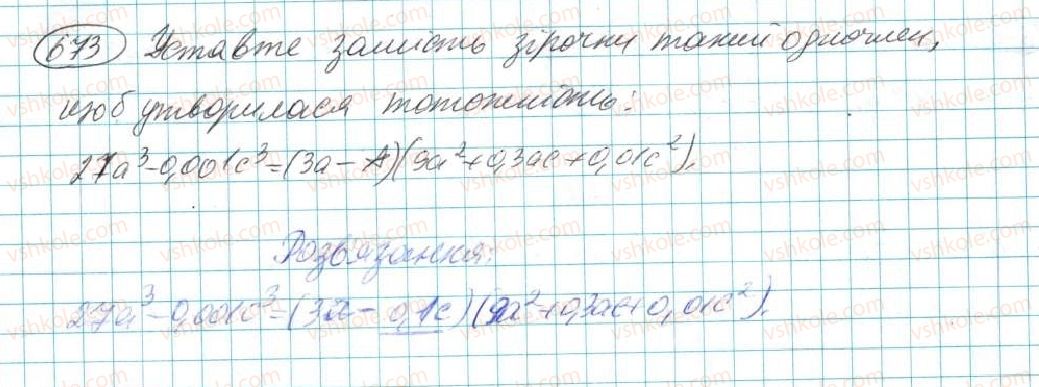 673 Уставте замість зірочки такий одночлен,
щоб утворилася тотожність:
27a³-0,001c³=(3a-*)(9a²+0,3ac+0,01c²).
Розв'язання:
27a³-0,001c³=(3a-0,1c)(9a²+0,3ac+0,01c²).